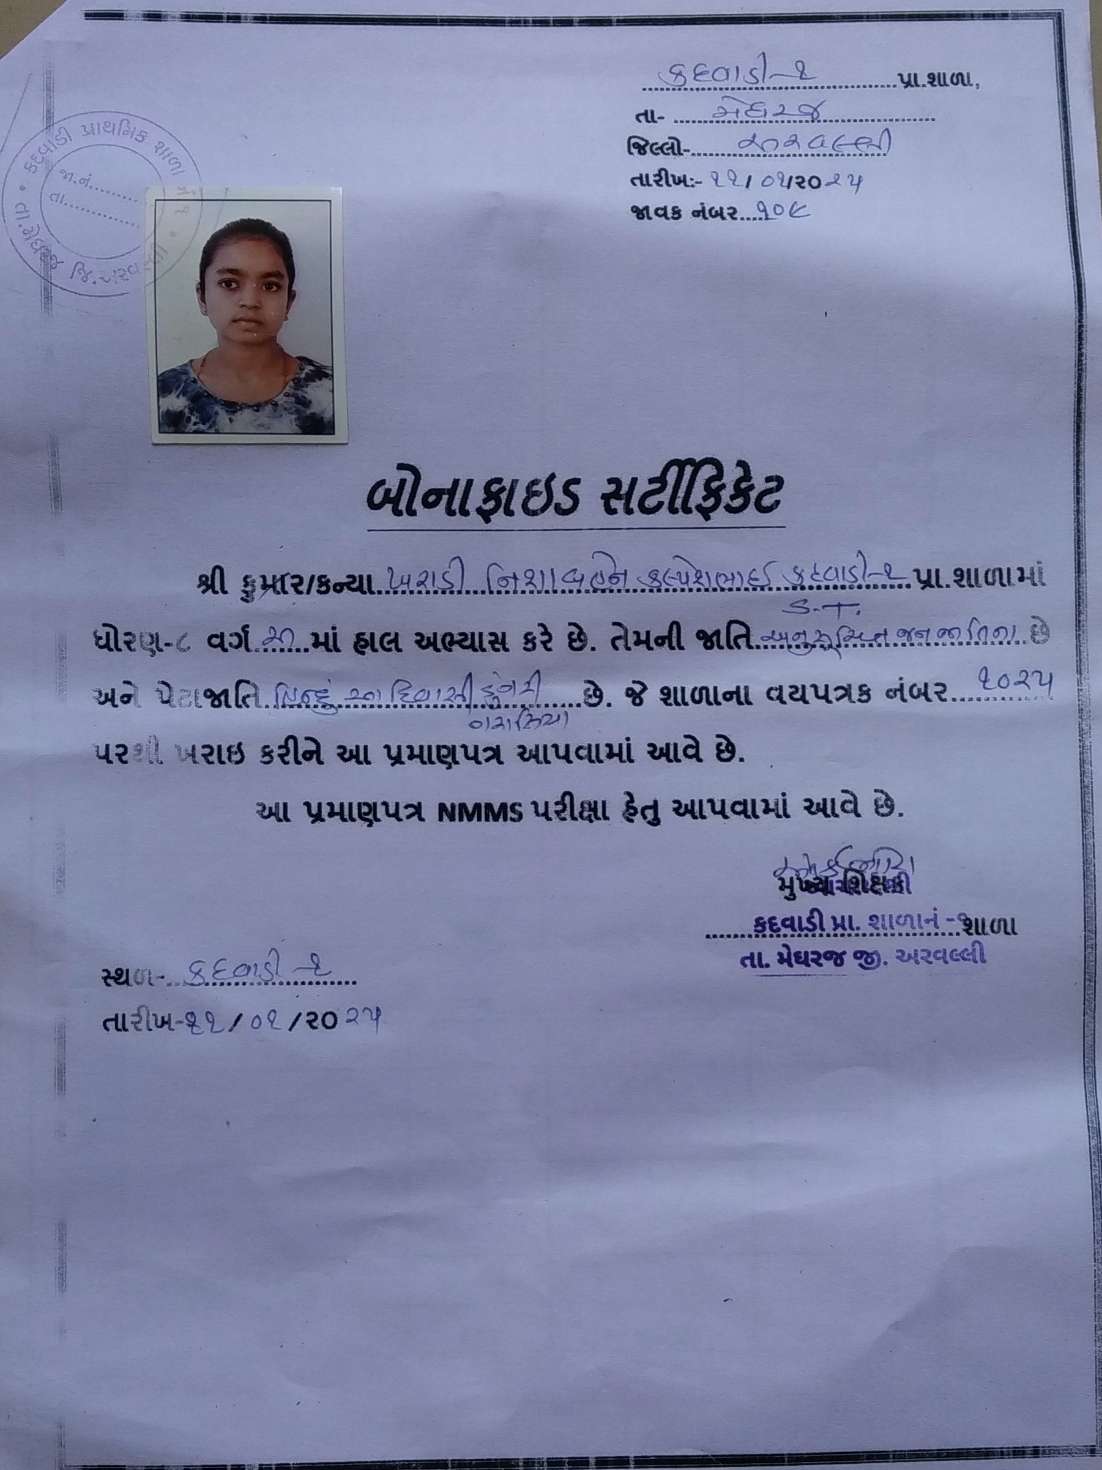 કદવાડી-૧ પ્રા.શાળા,
તા- મેઘરજ
જિલ્લો- અરવલ્લી
તારીખ:- ૨૧/૦૧/૨૦૨૫
જાવક નંબર ૧૦૯
કદવાડી પ્રાથમિક શાળા નં ૧
જા.નં.
તા.
તા.મેઘરજ જિ.અરવલ્લી
બોનાફાઇડ સર્ટીફિકેટ
શ્રી કુમાર/કન્યા ખરાડી નિશાબહેન કલ્પેશભાઈ કદવાડી-૧ પ્રા.શાળામાં
S.T.
ધોરણ-૮ વર્ગ માં હાલ અભ્યાસ કરે છે. તેમની જાતિ અનુસૂચિત જનજાતિના છે
અને પેટાજાતિ હિન્દુ આદિવાસી ડુંગરી છે. જે શાળાના વયપત્રક નંબર ૧૦૨૫
ગરાસિયા
પરથી ખરાઇ કરીને આ પ્રમાણપત્ર આપવામાં આવે છે.
આ પ્રમાણપત્ર NMMS પરીક્ષા હેતુ આપવામાં આવે છે.
મુખ્ય શિક્ષક
કદવાડી પ્રા. શાળાનં - ૧ શાળા
તા. મેઘરજ જી. અરવલ્લી
સ્થળ- કદવાડી-૧
તારીખ-૨૧/૦૧/૨૦૨૫